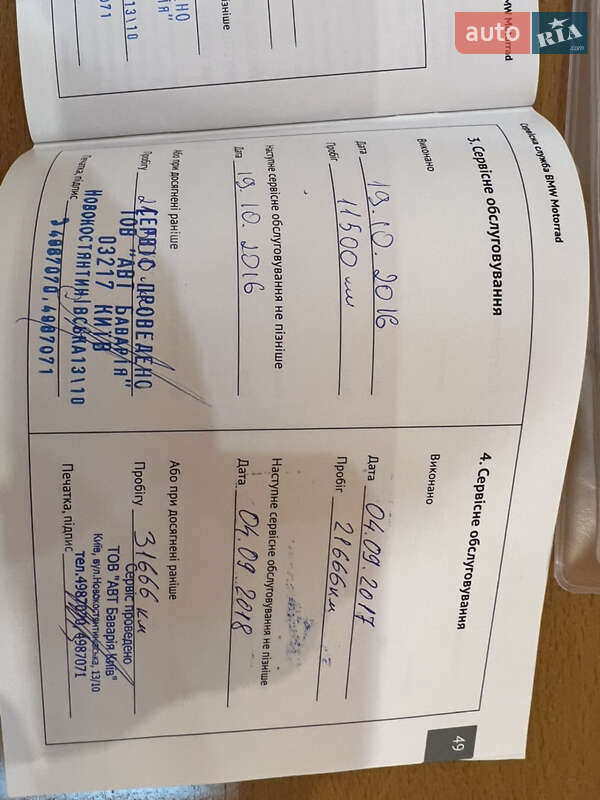 auto RIA.com
MW Motorrad
ЕНО
ІЯ"
13\10
7071
пізніше
Сервісна служба BMW Motorrad
3. Сервісне обслуговування
Виконано
Дата 19.10.2016
Пробіг 11500 км
Наступне сервісне обслуговування не пізніше
Дата 19.10.2016
Або при досягнені раніше
Пробігу
Печатка, підпис
СЕРВІС ПРОВЕДЕНО
ТОВ "АВТ БАВАРІЯ"
03217 КИЇВ
НОВОКОСТЯНТИНІВСЬКА13\10
4987070,4987071
4. Сервісне обслуговування
Виконано
Дата 04.09.2017
Пробіг 21666км
Наступне сервісне обслуговування не пізніше
Дата 04.09.2018
Або при досягнені раніше
Пробігу 31666 км
Печатка, підпис
Сервіс проведено
ТОВ "АВТ Баварія Київ"
Київ, вул.Новокостянтинівська, 13/10
тел.4987070, 4987071
49